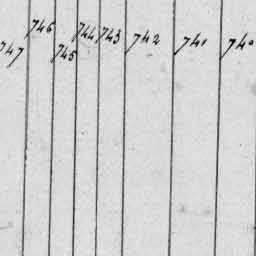 747 746 745 744 743 742 741 740